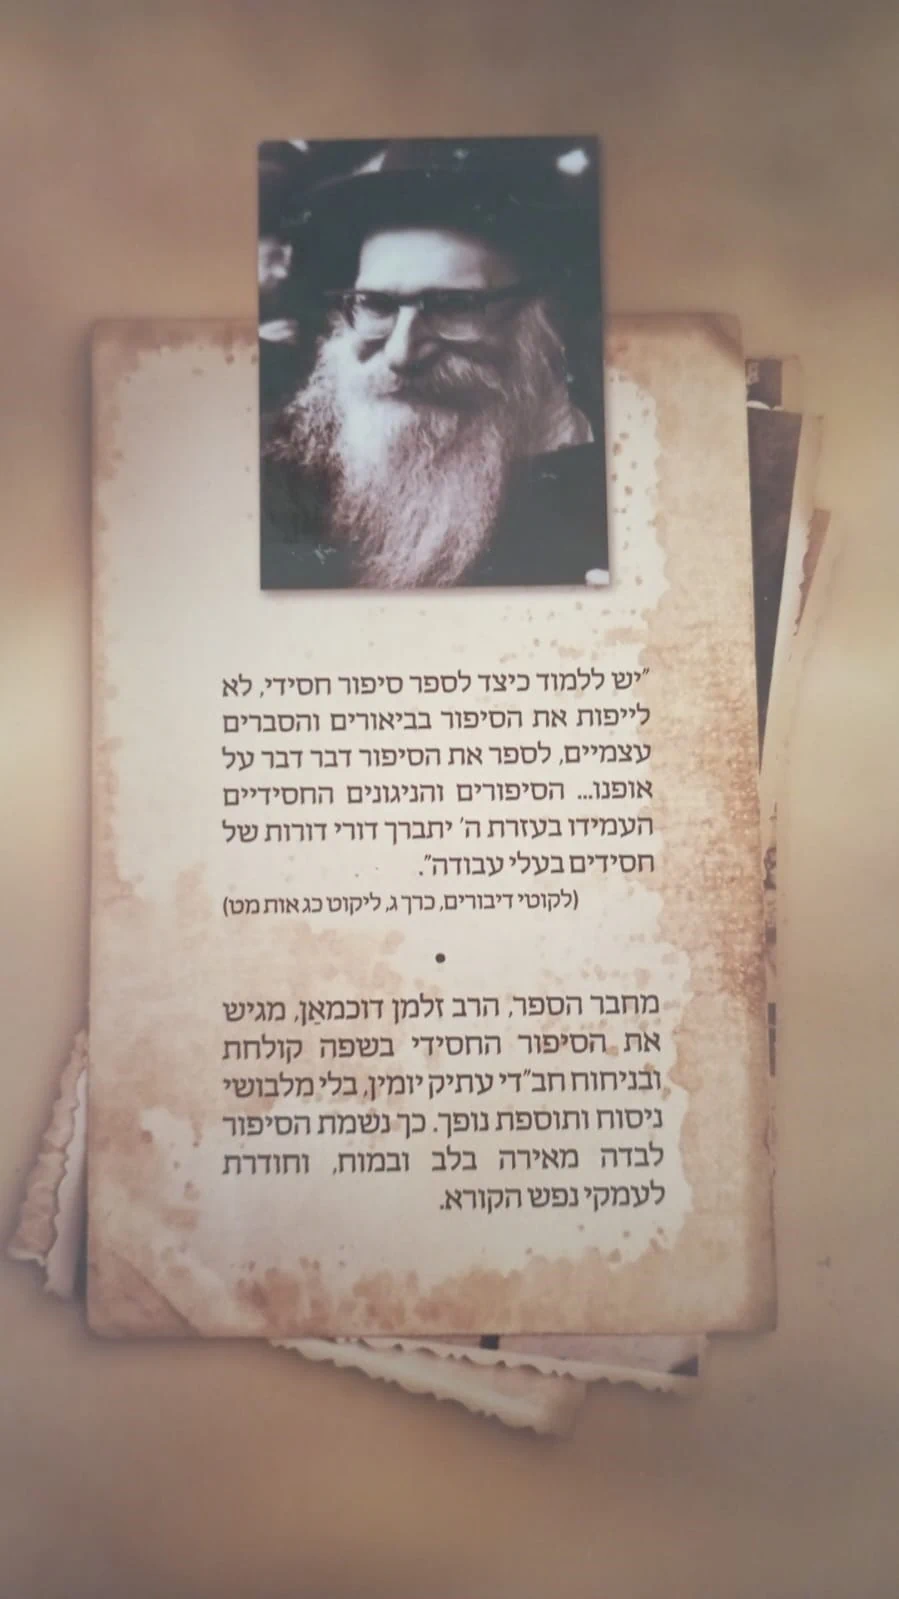 "יש ללמוד כיצד לספר סיפור חסידי, לא
לייפות את הסיפור בביאורים והסברים
עצמיים, לספר את הסיפור דבר דבר על
אופנו... הסיפורים והניגונים החסידיים
העמידו בעזרת ה' יתברך דורי דורות של
חסידים בעלי עבודה".
(לקוטי דיבורים, כרך ג, ליקוט כג אות מט)
•
מחבר הספר, הרב זלמן דוכמאַן, מגיש
את הסיפור החסידי בשפה קולחת
ובניחוח חב"די עתיק יומין, בלי מלבושי
ניסוח ותוספת נופך. כך נשמת הסיפור
לבדה מאירה בלב ובמוח, וחודרת
לעמקי נפש הקורא.